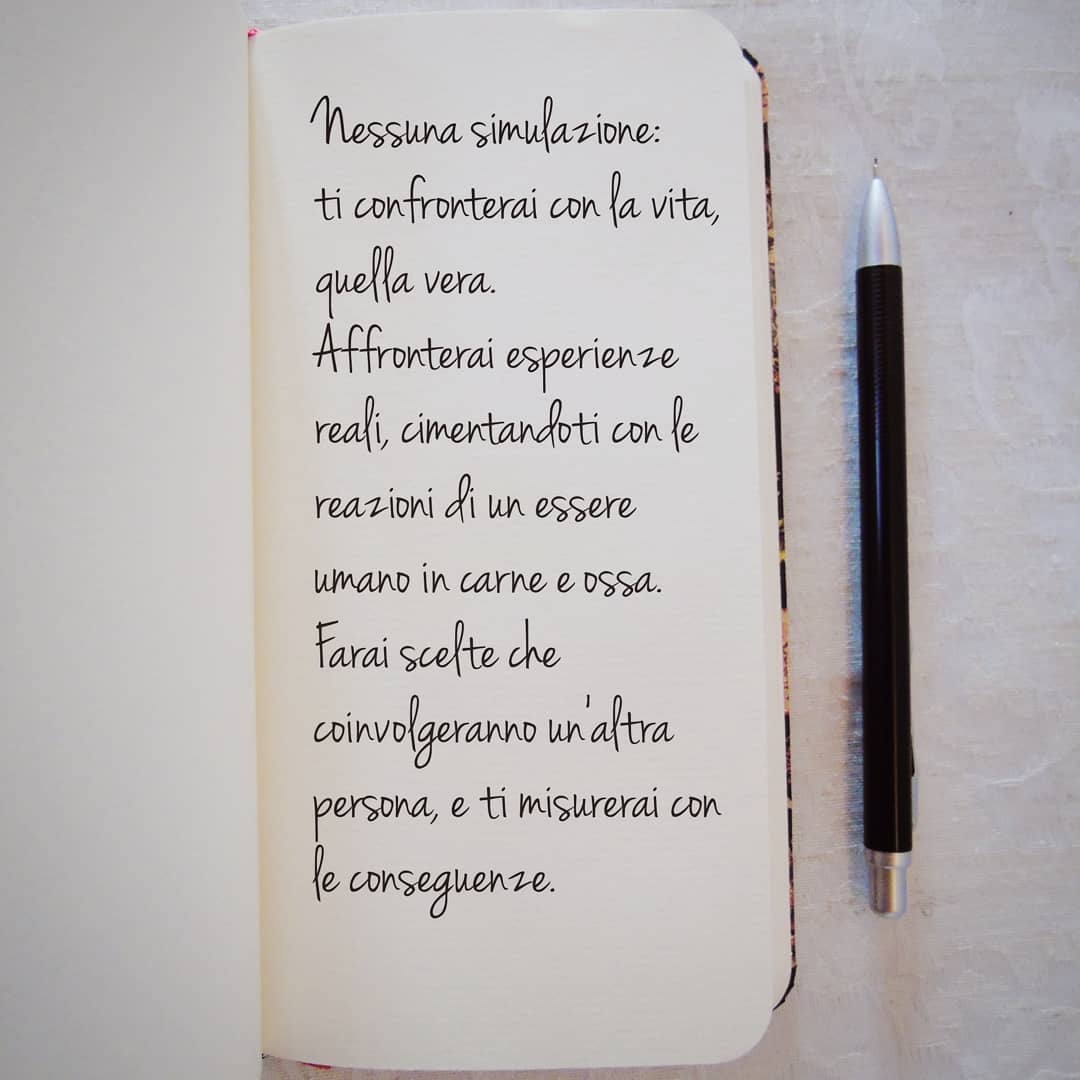 Nessuna simulazione:
ti confronterai con la vita,
quella vera.
Affronterai esperienze
reali, cimentandoti con le
reazioni di un essere
umano in carne e ossa.
Farai scelte che
coinvolgeranno un'altra
persona, e ti misurerai con
le conseguenze.